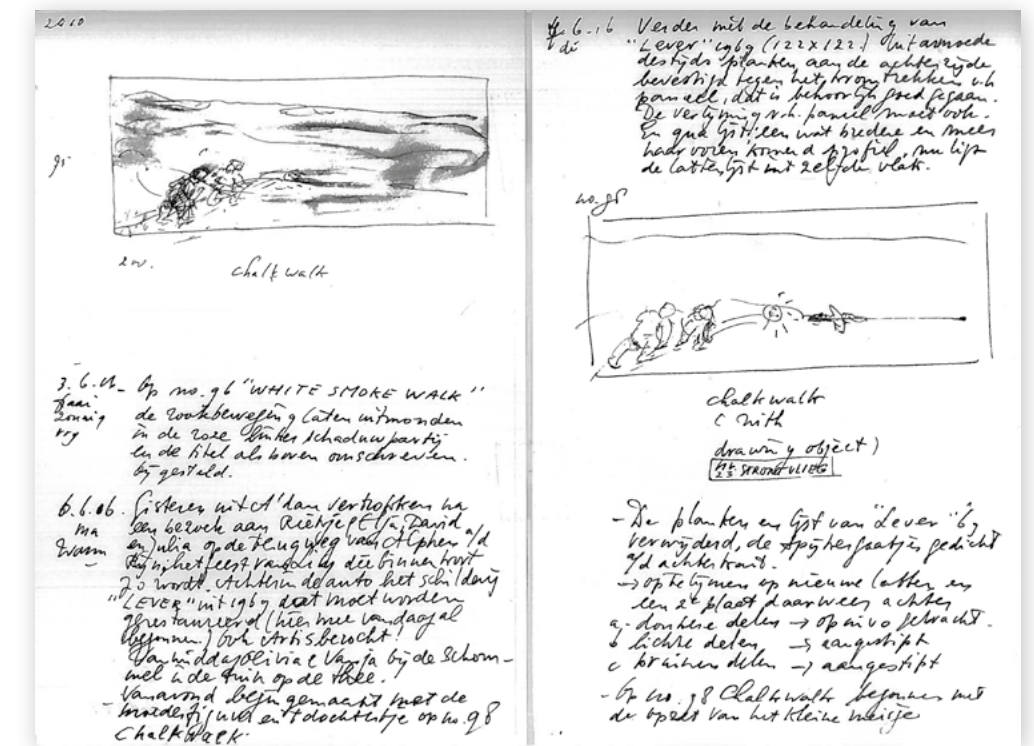 2010
95
200.
Chalk walk
3.6.06 - Op no. 96 "WHITE SMOKE WALK"
fraai
zonnig
vrij
de rookbeweging laten uitmonden
in de roze linker schaduwpartij
en de titel als boven omschreven
bijgesteld.
6.6.06. Gisteren uit A'dam vertrokken na
ma
warm
een bezoek aan Rietje, Elja, David
en Julia op de terugweg van Alphen a/d
Rijn het feest van die binnenkort
70 wordt. Achterin de auto het schilderij
"LEVER" uit 1969 dat moet worden
gerestaureerd (hiermee vandaag al
begonnen.) Ook Artis bezocht!
Vanmiddag Olivia & Vanja bij de schom-
mel in de tuin op de thee.
- Vanavond begin gemaakt met de
moederfiguur en 't dochtertje op no. 98
Chalkwalk.
6.16
di
Verder met de behandeling van
"Lever" 1969 (122x122.) Uit armoede
destijds planken aan de achterzijde
bevestigd tegen het kromtrekken v.h.
paneel, dat is behoorlijk goed gegaan.
De verlijming v.h. paneel moet ook.
En qua lijst: een wat bredere en meer
naar voren komend profiel, nu ligt
de lattenlijst in 't zelfde vlak.
no. 98
chalkwalk
( with
drawing object )
STRONTVLIEG
- De planken en lijst van "Lever" 69
verwijderd, de spijkergaatjes gedicht
a/d achterkant.
→ op te lijmen op nieuwe latten en
een 2e plaat daarweer achter
a. donkere delen → op nivo gebracht.
b lichte delen → aangestipt
c bruinen delen → aangestipt
- Op no. 98 Chalkwalk begonnen met
de opzet van het kleine meisje